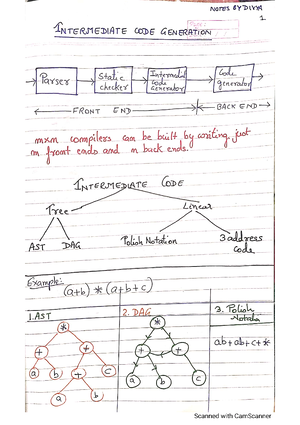 NOTES BY DIVYA
1
INTERMEDIATE CODE GENERATION
Parser
Static checker
Intermediate Code Generator
Code generator
FRONT END
BACK END
mxn compilers can be built by writing just
m front ends and n back ends.
INTERMEDIATE CODE
Tree
Linear
AST
DAG
Polish Notation
3 address Code
Example:
(a+b) * (a+b+c)
1. AST
2. DAG
3. Polish Notatn
*
+
+
a
b
+
c
a
b
*
+
+
a
b
c
ab+ab+c+*
Scanned with CamScanner